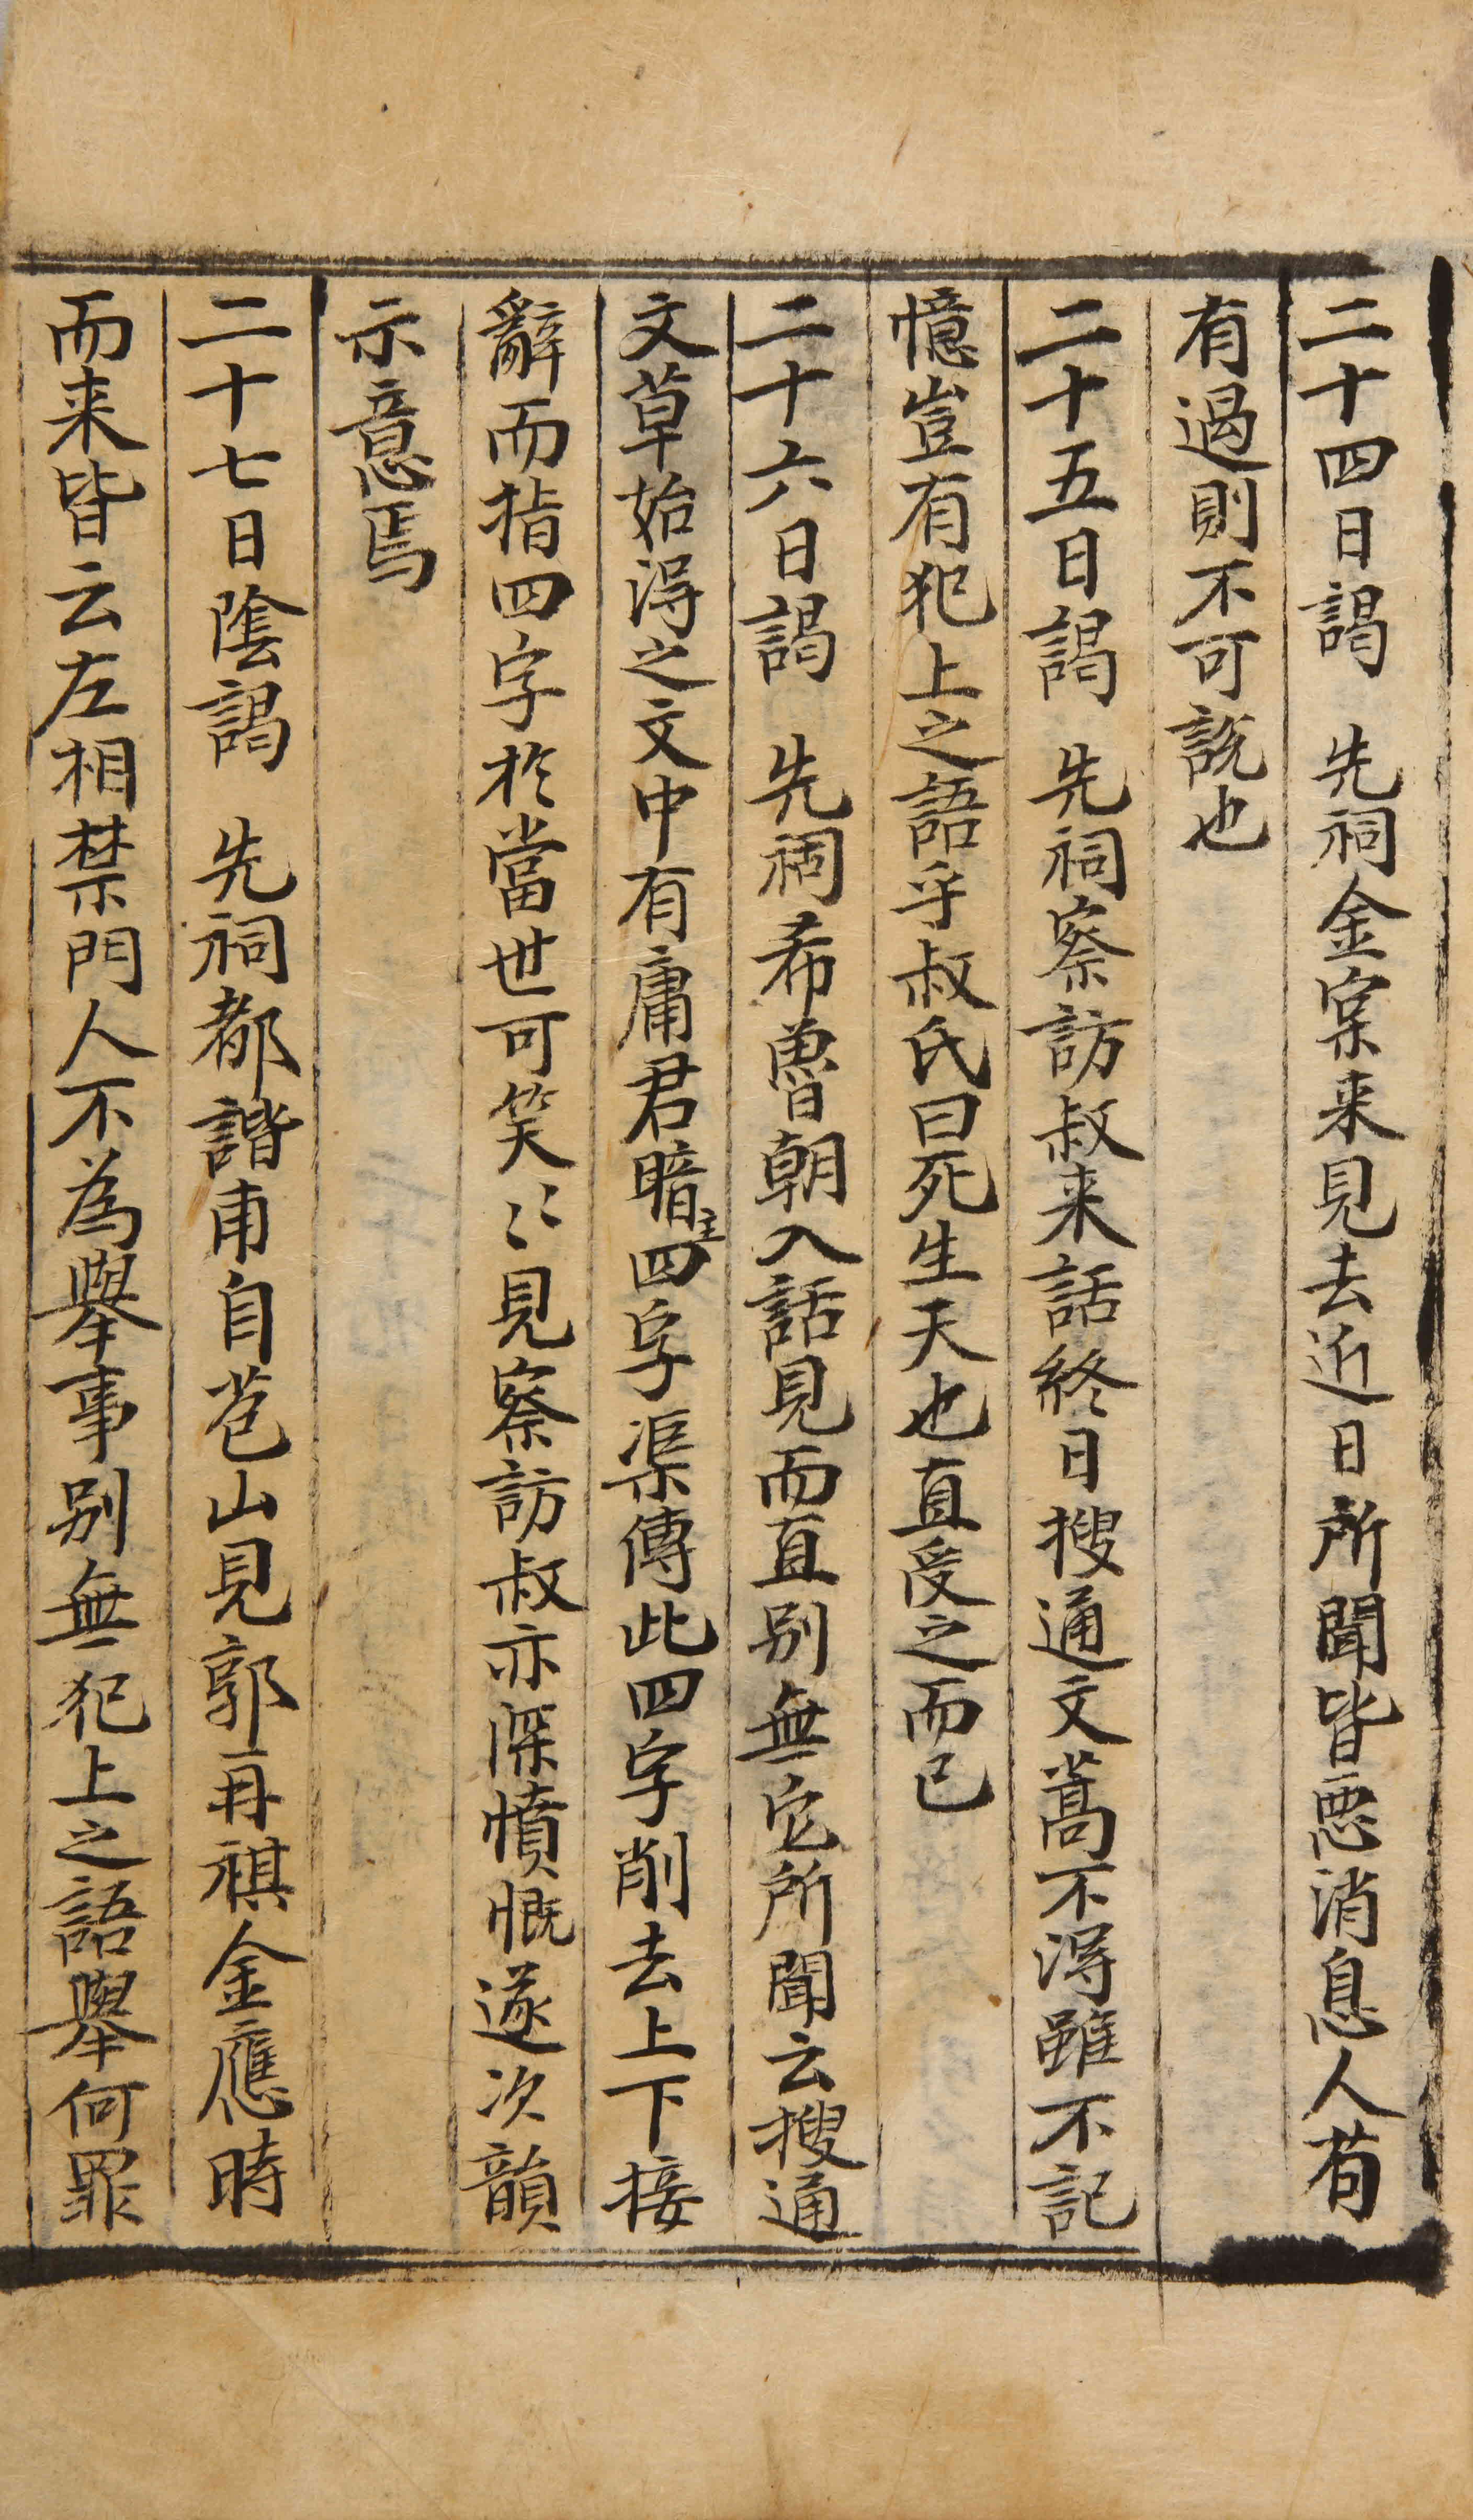 二十四日謁 先祠金寀来見去近日所聞皆悪消息人苟
有過則不可説也
二十五日謁 先祠察訪叔来話終日搜通文蒿不淂雖不記
憶豈有犯上之語乎叔氏曰死生天也直受之而已
二十六日謁 先祠希魯朝入話見而直别無它所聞云搜通
文草始淂之文中有庸君暗主四字渠傳此四字削去上下接
辭而指四字於當世可笑〻見察訪叔亦深憤慨遂次韻
示意焉
二十七日陰謁 先祠都諧甫自苞山見郭再祺金應時
而来皆云左相禁門人不為舉事别無犯上之語舉何罪